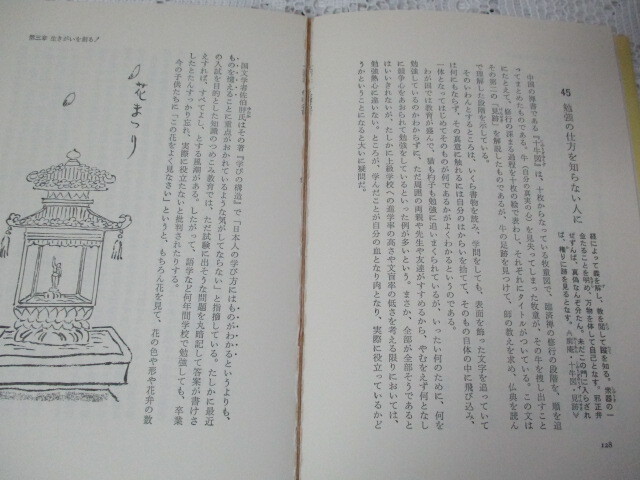 45 勉強の仕方を知らない人に
経によって義を解し、教を閲して蹤を知る。衆器の一
金たることを明め、万物を体して自己となす。邪正弁
ぜずんば、真偽なんぞ分たん。未だこの門に入らざれ
ば、権りに跡を見るとなす。
中国の禅書である『十牛図』は、十枚からなっている牧童図で、臨済禅の修行の段階を、順を追
ってまとめたものである。牛（自分の真実の心）を見失ってしまった牧童が、その牛を捜し出すこと
にたとえて、修行の深まる過程を十枚の絵で表わし、それぞれにタイトルがついている。この文は
その第二の「見跡」を解説したものであるが、牛の足跡を見つけて、師の教えを求め、仏典を読ん
で理解した段階を示している。
そのいわんとするところは、いくら書物を読み、学問をしても、表面を飾った文字を追っていて
は何にもならず、その真意に触れるには自分のはからいを捨てて、そのもの自体の中に飛び込み、
一体となってはじめてそのものが何であるかがよくわかるというのである。
わが国では教育が盛んで、猫も杓子も勉強に追いまくられているが、いったい何のために、何を
勉強しているのかわからずに、ただ周囲の両親や先生や友達がすすめるから、やむをえず何となし
に競争心をあおられて勉強をしているといった例が多いという。まさか、全部が全部そうであると
はいいきれないが、たしかに上級学校への進学率の高さや文盲率の低さを考える限りにおいては、
勉強熱心に違いない。ところが、学んだことが自分の血となり肉となり、実際に役立っているかど
うかということになると大いに疑問だ。
128
第三章 生きがいを創る！
国文学者佐伯胖氏はその著『学びの構造』で「日本人の学び方にはものがわかるというよりも、
ものを憶えることに重点がおかれているような気がしてならない」と指摘している。たしかに最近
の入試を目的とした知識のつめこみ教育では、ただ試験に出そうな問題を丸暗記して答案が書けさ
えすれば、すべてよし、とする風潮がある。したがって、語学など何年間学校で勉強しても、卒業
したとたんすっかり忘れ、実際に役立たないと批判されたりする。
今の子供たちに「この花をよく見なさい」というと、もちろん花を見て、花の色や形や花弁の数
花まつり